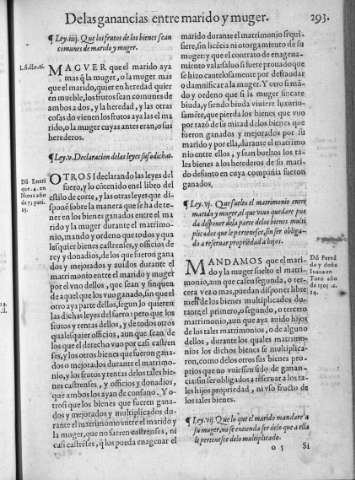 De las ganancias entre marido y muger. 293.
¶ Ley.iiij. Que los frutos de los bienes sean
comunes de marido y muger.
MAGVER que el marido aya
mas q̃ la muger, o la muger mas
que el marido, quier en heredad quier
en mueble, los frutos sean comunes de
ambos dos, y la heredad, y las otras
cosas do vienen los frutos aya las el ma
rido, o la muger cuyas antes eran, o sus
herederos.
¶ Ley.v. Declaracion de las leyes susodichas.
OTROSI declarando las leyes del
fuero, y lo cõtenido en el libro del
estilo de corte, y las otras leyes que dis
ponẽ sobre la manera que se ha de te-
ner en los bienes ganados entre el ma
rido y la muger durante el matrimo-
nio, mando y ordeno que todos y qua
lesquier bienes castrenses, y officios de
rey y donadios, de los que fueron gana
dos y mejorados y auidos durante el
matrimonio entre el marido y muger
por el vno dellos, que sean y finquen
de aquel que los vuo ganado, sin que el
otro aya parte dellos, segun lo quieren
las dichas leyes del fuero: pero que los
frutos y rentas dellos, y de todos otros
qualesquier officios, aun que sean de
los que el derecho vuo por casi castren
ses, y los otros bienes que fueron gana-
dos o mejorados durante el matrimo-
nio, y los frutos y rentas de los tales bie-
nes castrenses, y officios y donadios,
que ambos los ayan de consuno. Y o-
trosi que los bienes que fueren gana-
dos y mejorados y multiplicados du-
rante el matrimonio entre el marido y
la muger, que no fueren castrenses, ni
casi castrenses, q̃ los pueda enagenar el
marido durante el matrimonio si qui-
siere, sin licẽcia ni otorgamiento de su
muger: y que el contrato de enagena-
miento vala saluo si fuere prouado que
se hizo cautelosamente por defraudar
o damnificar a la muger. Y otro si mã-
do y ordeno que si la muger fincare
biuda, y siendo biuda viuiere luxurio-
samẽte, que pierda los bienes que vuo
por razõ de su mitad de los bienes que
fueron ganados y mejorados por su
marido y por ella, durante el matrimo
nio entre ellos, y sean bueltos los ta-
les bienes a los herederos de su mari-
do defunto en cuya compañia fueron
ganados.
¶ Ley.vj. Que suelto el matrimonio entre
marido y muger, el que viuo quedare pue
da disponer de la parte de los bienes multi
plicados que le pertenesce, sin ser obliga-
do a reseruar propriedad a hijos.
MANDAMOS que el mari-
do y la muger suelto el matri-
monio, aun que casen segunda, o ter-
cera vez o mas, puedan disponer libre
mente de los bienes multiplicados du-
rante el primero, segundo, o tercero
matrimonio, aun que aya auido hijos
de los tales matrimonios, o de alguno
dellos, durante los quales matrimo-
nios los dichos bienes se multiplica-
ron, como de los otros sus bienes pro-
prios que no vuiessen sido de ganan-
cia, sin ser obligados a reseruar a los ta-
les hijos propriedad, ni vsofructo de
los tales bienes.
¶ Ley.vij. Que lo que el marido mandare a
su muger, no se entienda ser delo que a ella
le pertenesce delo multiplicado.
O 5 Si